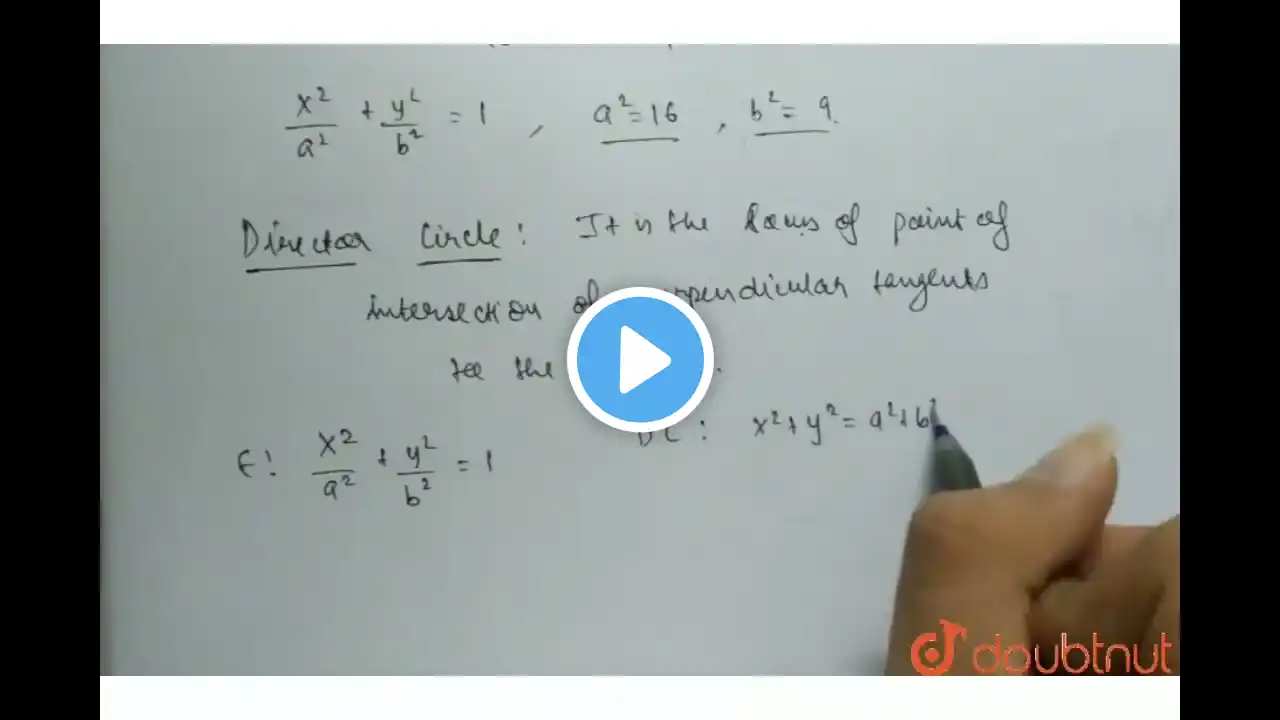 x²/a² + y²/b² = 1 , a²=16 , b²= 9.
Director Circle: It is the locus of point of
intersection of perpendicular tangents
to the
E: x²/a² + y²/b² = 1
DC: x²+y² = a²+b²
doubtnut